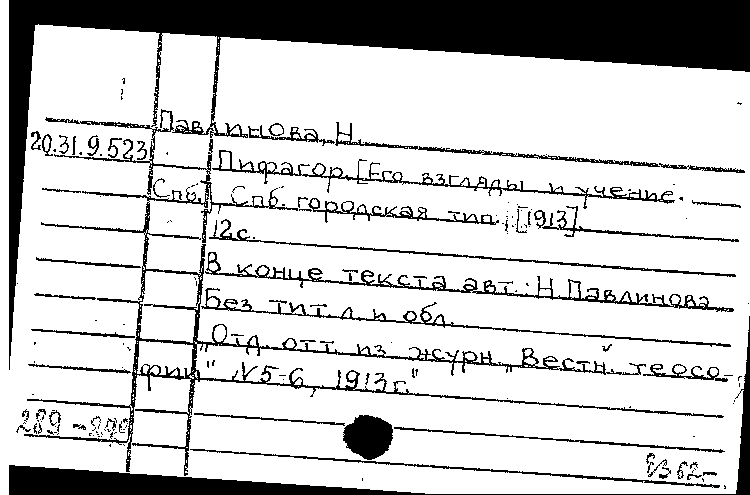 Павлинова, Н.
20.31.9.523
Пифагор. [Его взгляды и учение.
Спб.], Спб. городская тип., [1913].
12с.
В конце текста авт.: Н.Павлинова
Без тит. л. и обл.
„Отд. отт. из журн. „Вестн. теосо-
фии" №5-6, 1913г."